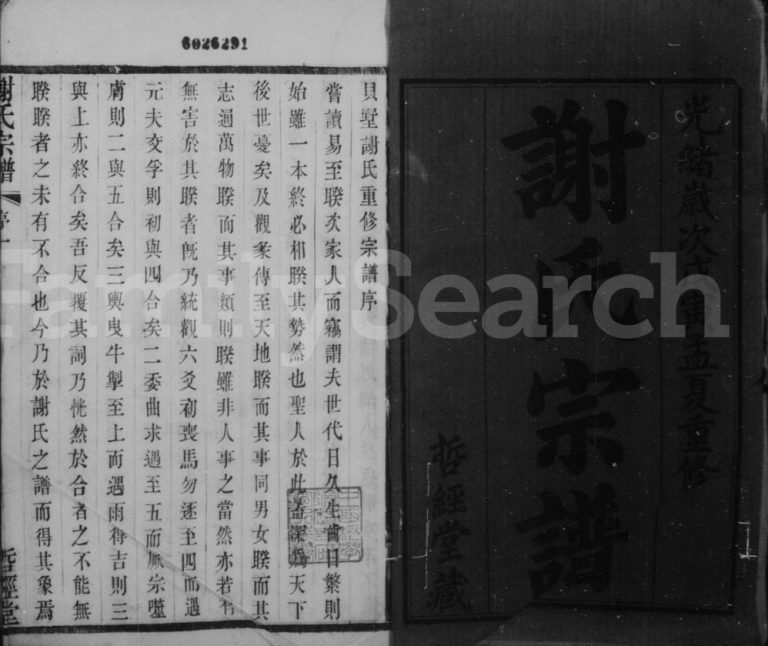 6026291
光緒歲次戊寅孟夏重修
謝氏宗譜
哲經堂藏
貝墅謝氏重修宗譜序
嘗讀易至睽次家人而竊謂夫世代日久生齒日繁則
始雖一本終必相睽其勢然也聖人於此蓋深為天下
後世憂矣及觀彖傳至天地睽而其事同男女睽而其
志通萬物睽而其事類則睽雖非人事之當然亦若有
無害於其睽者旣乃統觀六爻初喪馬勿逐至四而遇
元夫交孚則初與四合矣二委曲求遇至五而厥宗噬
膚則二與五合矣三與曳牛掣至上而遇雨得吉則三
與上亦終合矣吾反覆其詞乃恍然於合者之不能無
睽睽者之未有不合也今乃於謝氏之譜而得其象焉
謝氏宗譜
序一
哲經堂
FamilySearch